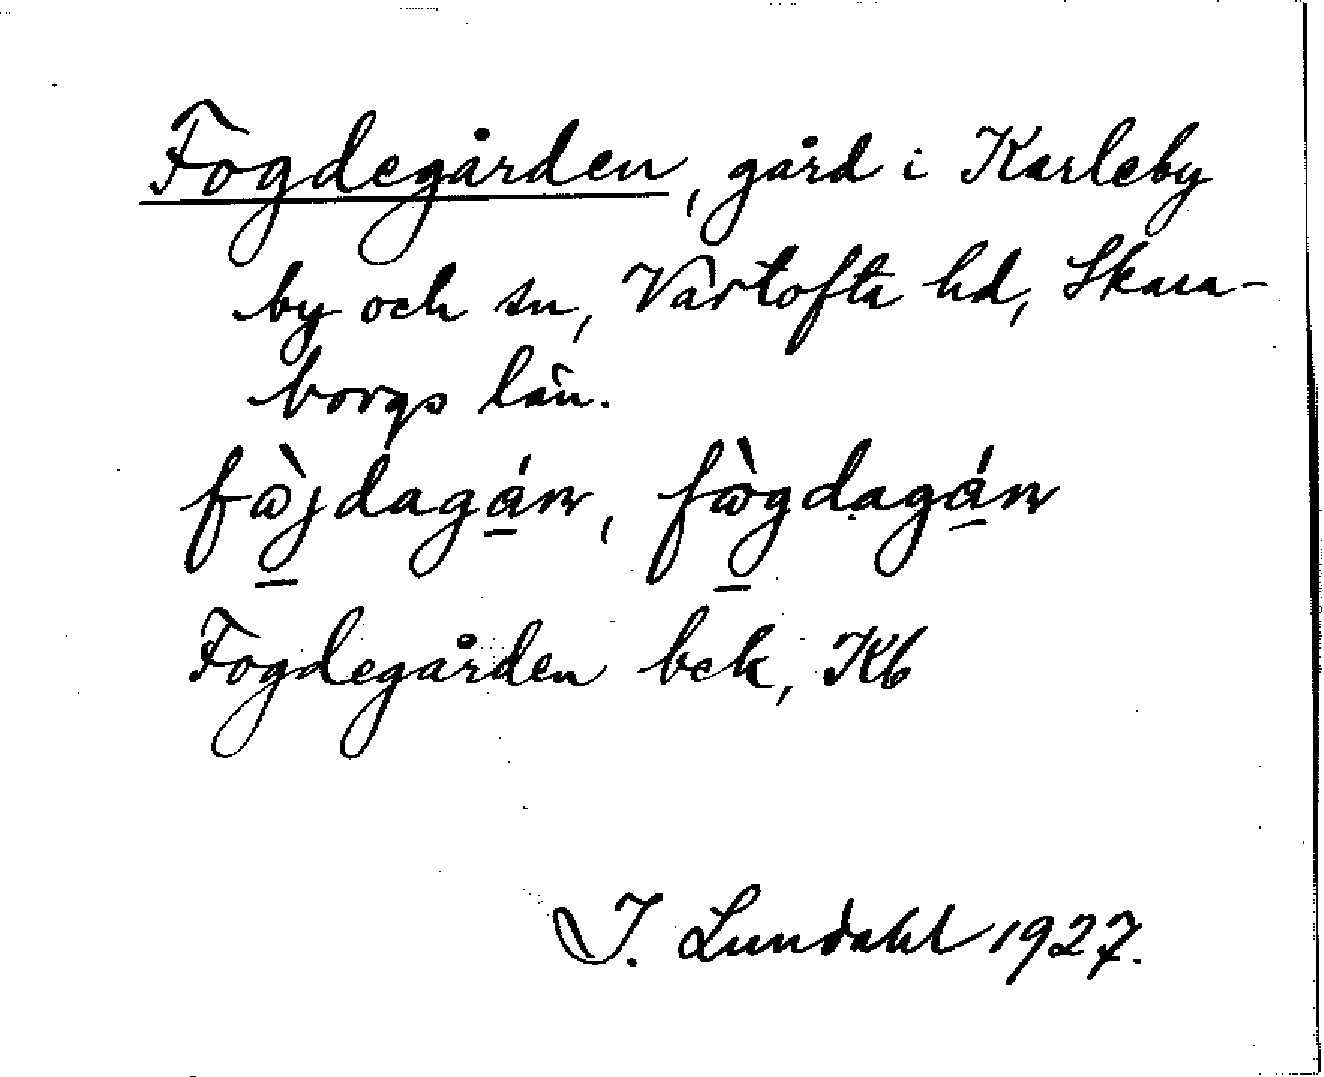 Fogdegården, gård i Karleby
by och sn, Vartofta hd, Skara-
borgs län.
fò̱jdagá̱n, fò̱gdagá̱n
Fogdegården bek, Kb
I. Lundahl 1927.